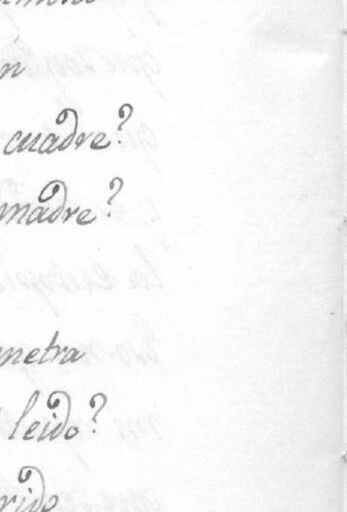 n
cuadre?
madre?
netra
leido?
rido